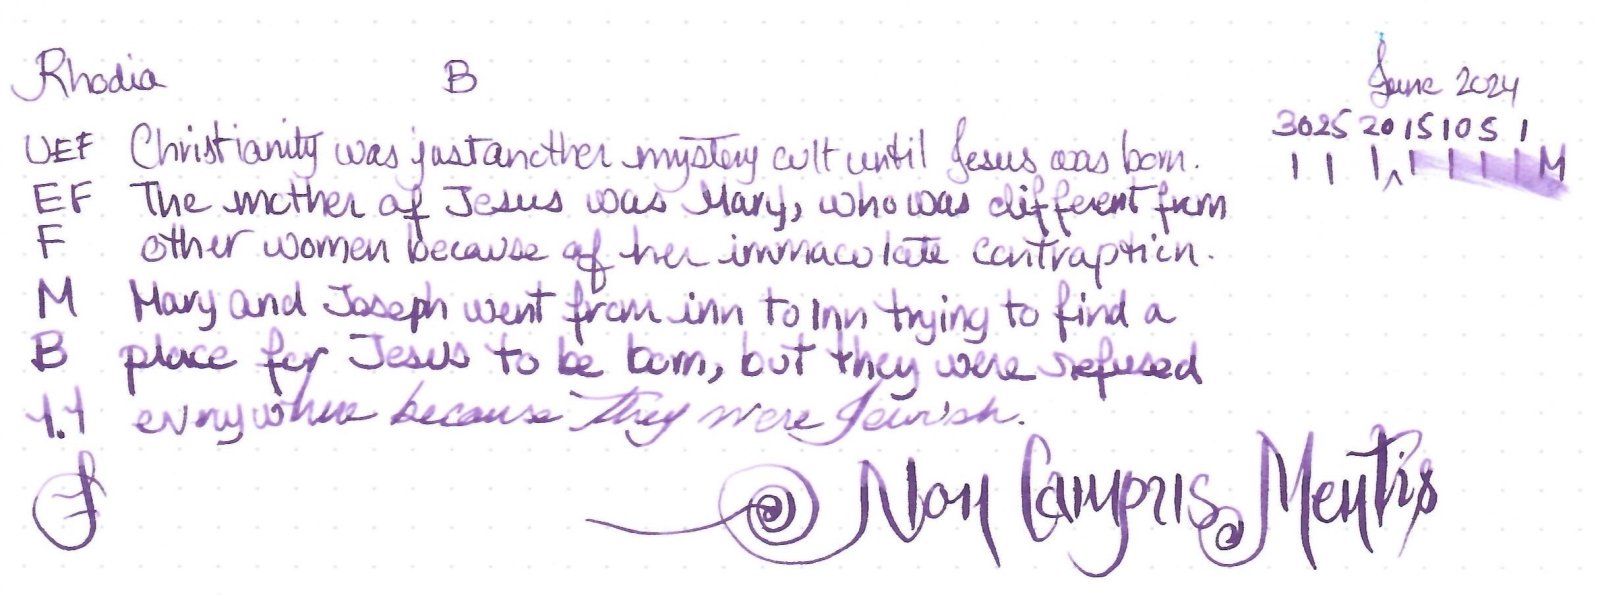 Rhodia B June 2024
30 25 20 15 10 5 1
M
UEF Christianity was just another mystery cult until Jesus was born.
EF The mother of Jesus was Mary, who was different from
F other women because of her immaculate contraption.
M Mary and Joseph went from inn to Inn trying to find a
B place for Jesus to be born, but they were refused
1.1 everywhere because they were Jewish.
F
Non Compris Mentis